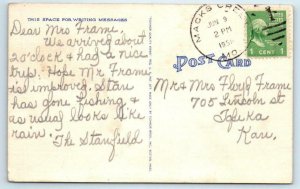 THIS SPACE FOR WRITING MESSAGES
Dear Mrs Frame,
We arrived about
2 o'clock & had a nice
trip. Hope Mr Frame
is improving. Stan
has gone fishing &
as usual looks like
rain.
The Stanfield
POST CARD
MACKS
JUN 9
2 PM
MO.
1 CENT 1
Mr & Mrs Floyd Frame
705 Lincoln st
Topeka
Kan.